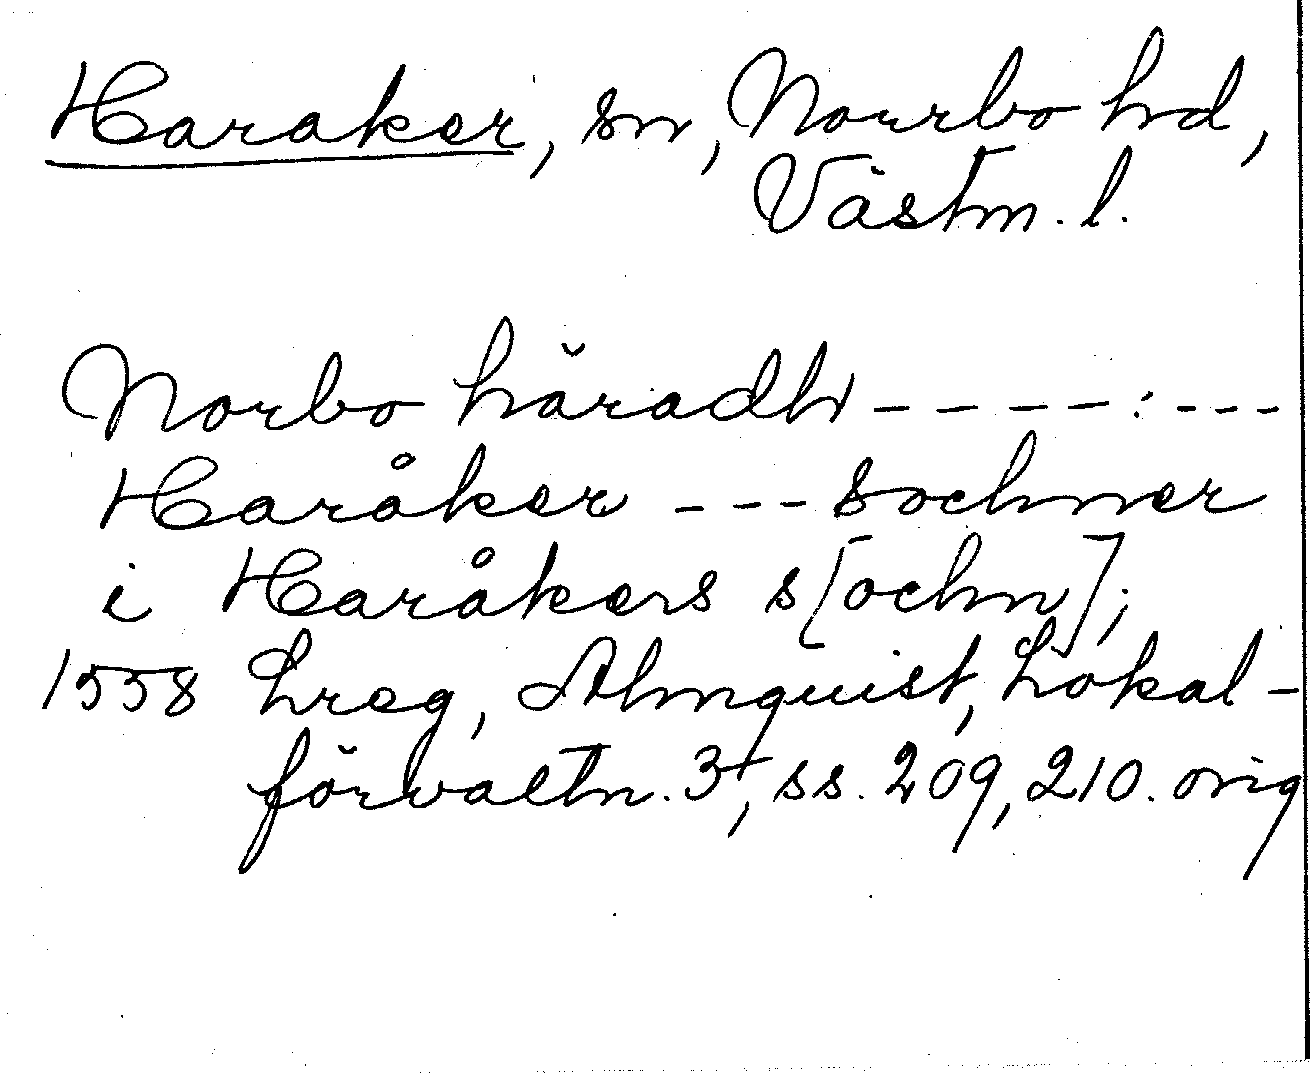 Haraker, sn, Norrbo hd,
Västm. l.
Norbo häradh - - - - : - - -
Haråker - - - sochner
i Haråkers s[ochn];
1558 Lreg, Almquist, Lokal-
förvaltn. 3, ss. 209, 210. orig